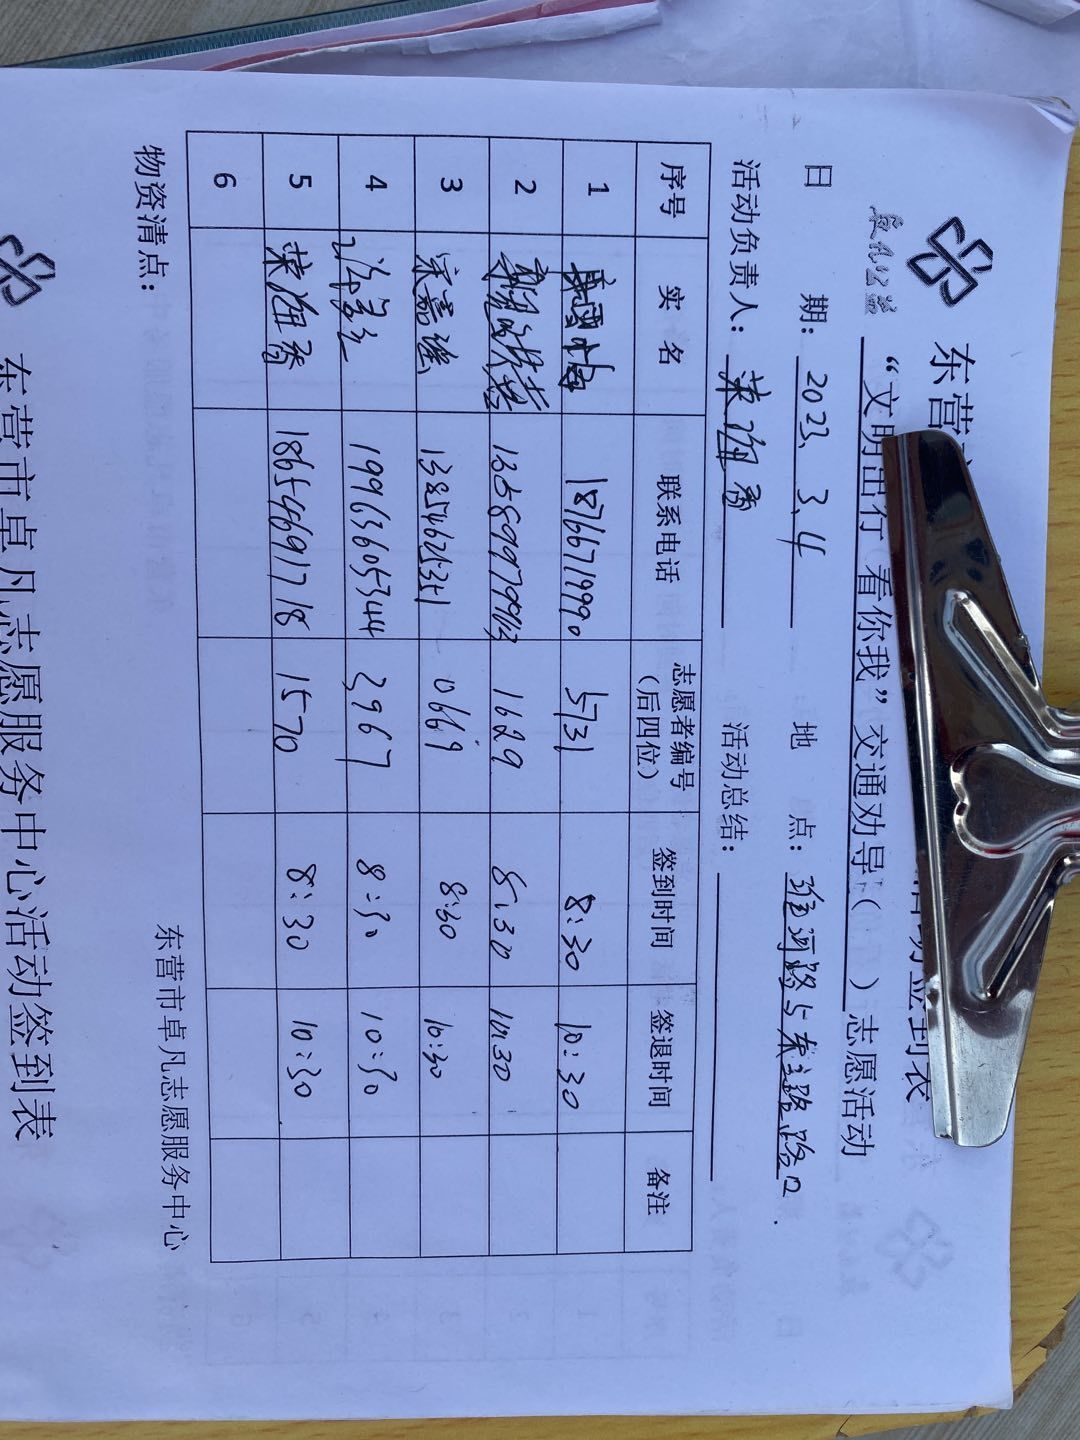 卓凡公益
东营
活动签到表
“文明出行 看你我”交通劝导（ ）志愿活动
日 期：2023.3.4 地 点：路与东三路路口
活动负责人： 活动总结：
序号 实 名 联系电话 志愿者编号（后四位） 签到时间 签退时间 备注
1 18766719990 5731 8:30 10:30
2 1629 8:30 10:30
3 宋嘉 13854625351 0669 8:30 10:30
4 19963605344 3967 8:30 10:30
5 18654691718 1570 8:30 10:30
6
物资清点： 东营市卓凡志愿服务中心
东营市卓凡志愿服务中心活动签到表